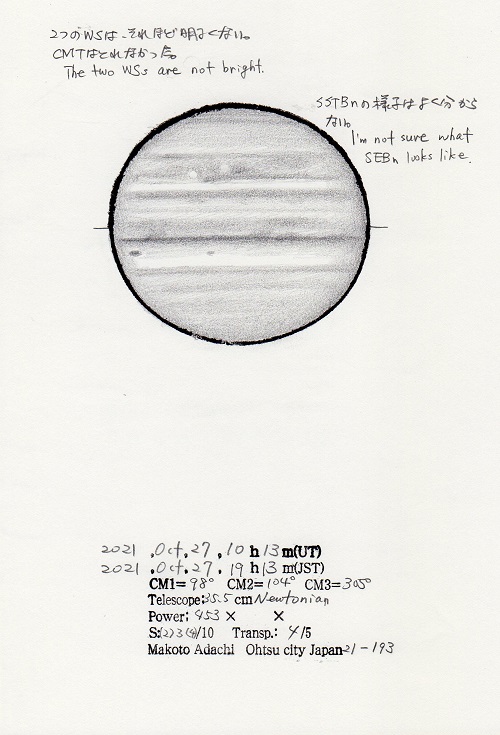 2つのWSは、それほど明るくない。
CMTはとれなかった。
The two WSs are not bright.
SSTBnの様子はよく分から
ない。
I'm not sure what
SEBn looks like.
2021 ,Oct,27, 10 h 13 m(UT)
2021 ,Oct,27, 19 h 13 m(JST)
CM1= 98° CM2= 104° CM3= 305°
Telescope:35.5 cm Newtonian
Power: 453 × ×
S:(2)3(4)/10 Transp.: 4/5
Makoto Adachi Ohtsu city Japan 21-193